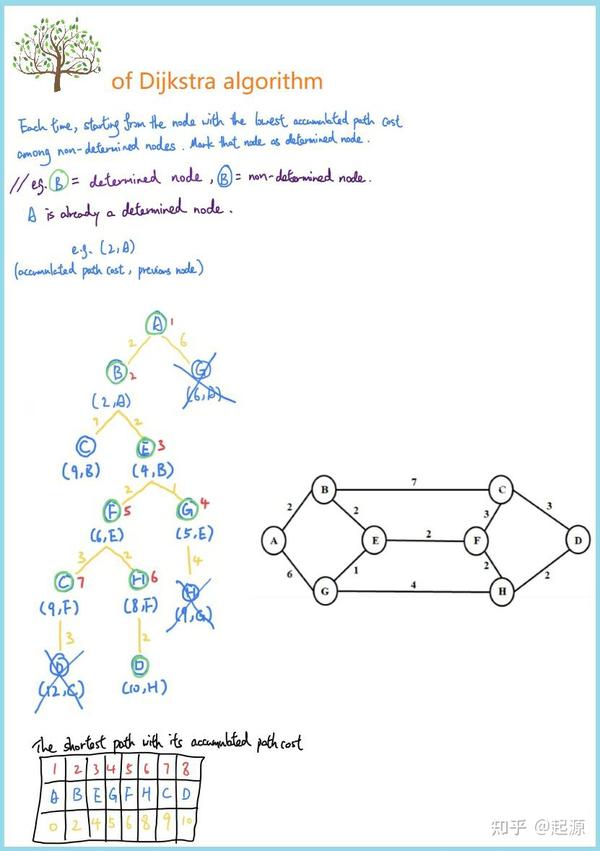 of Dijkstra algorithm
Each time, starting from the node with the lowest accumulated path cost
among non-determined nodes. Mark that node as determined node.
// eg. B = determined node, B = non-determined node.
A is already a determined node.
e.g. (2, A)
(accumulated path cost, previous node)
A 1
2 6
B 2 G
(2, A) (6, A)
7 2
C E 3
(9, B) (4, B)
2 1
F 5 G 4
(6, E) (5, E)
3 2 4
C 7 H 6 H
(9, F) (8, F) (9, G)
3 2
D D
(12, C) (10, H)
B 7 C
2 2 3 3
A E 2 F D
6 1 2 2
G 4 H
The shortest path with its accumulated path cost
1 2 3 4 5 6 7 8
A B E G F H C D
0 2 4 5 6 8 9 10
知乎 @起源